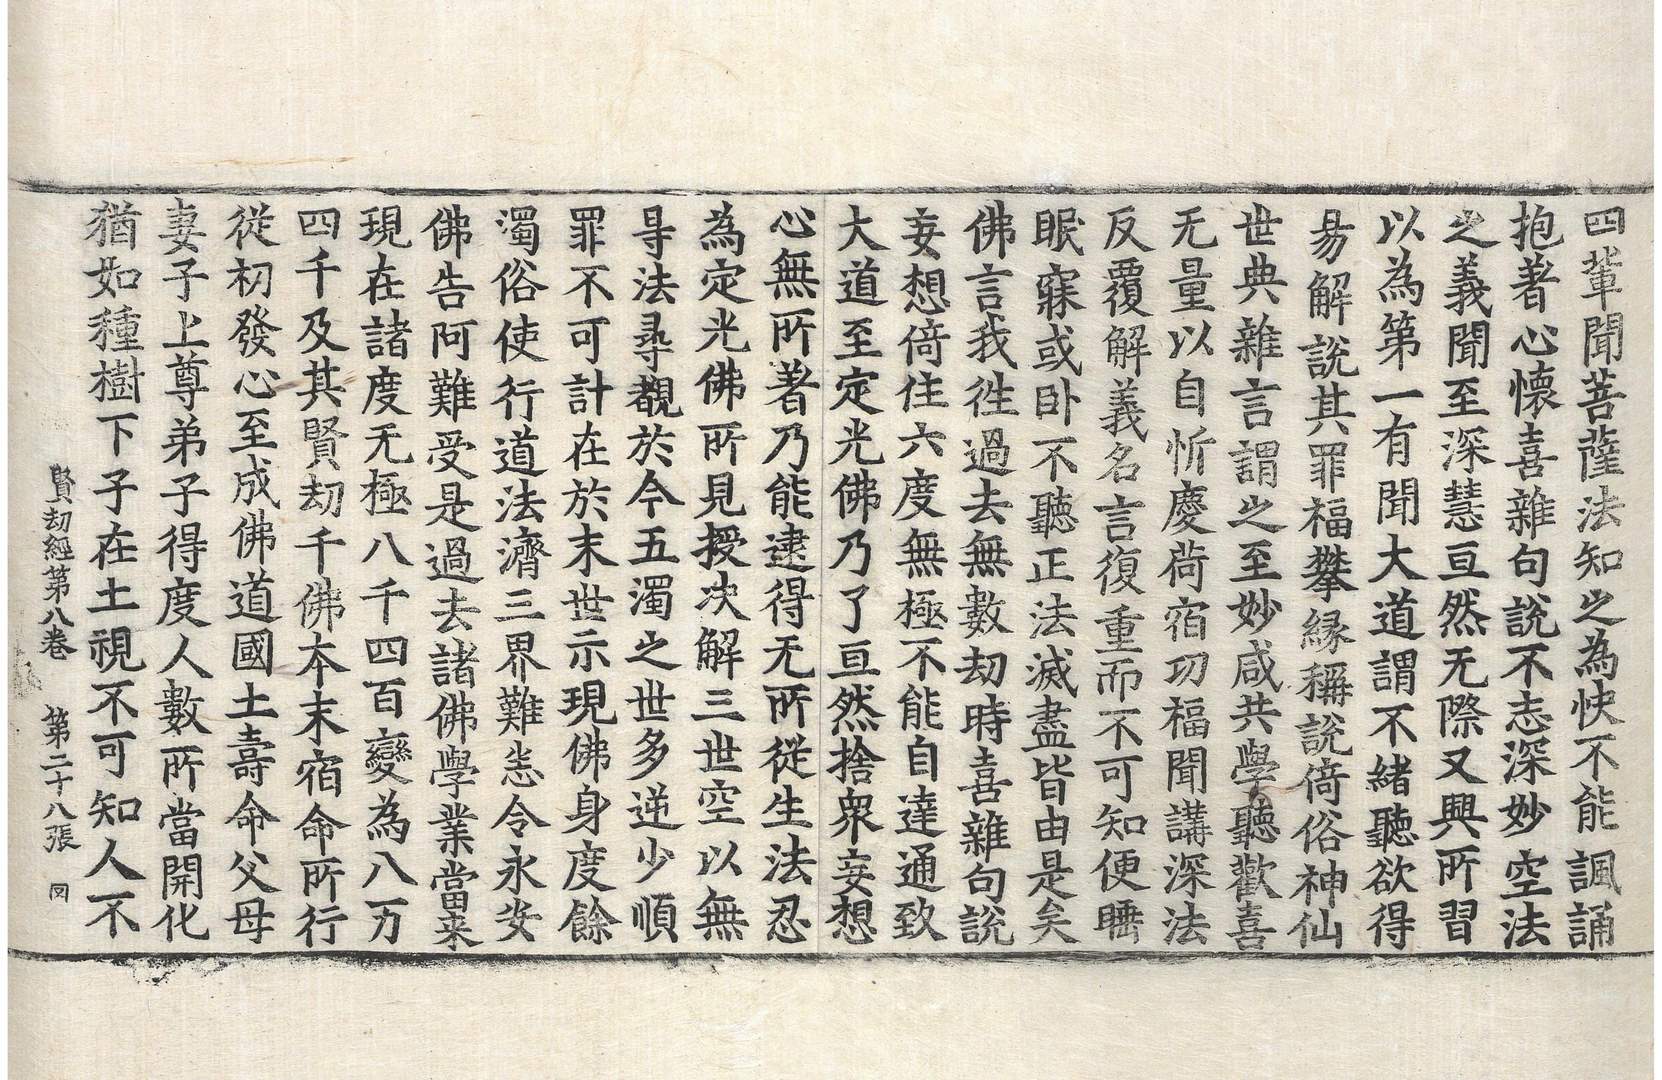 四輩聞菩薩法知之為快不能諷誦
抱著心懷喜雜句說不志深妙空法
之義聞至深慧亘然无際又興所習
以為第一有聞大道謂不緒聽欲得
易解說其罪福攀緣稱說倚俗神仙
世典雜言謂之至妙咸共學聽歡喜
无量以自忻慶荷宿㓛福聞講深法
反覆解義名言復重而不可知便睡
眠寐或卧不聽正法滅盡皆由是矣
佛言我徃過去無數劫時喜雜句說
妄想倚住六度無極不能自達通致
大道至定光佛乃了亘然捨衆妄想
心無所著乃能逮得无所從生法忍
為定光佛所見授决解三世空以無
㝵法㝷覩於今五濁之世多逆少順
罪不可計在於末世示現佛身度餘
濁俗使行道法濟三界難恙令永安
佛告阿難受是過去諸佛學業當来
現在諸度无極八千四百變為八万
四千及其賢劫千佛夲末宿命所行
從初發心至成佛道國土壽命父母
妻子上尊弟子得度人數所當開化
猶如種樹下子在土視不可知人不
賢劫經第八卷 第二十八張